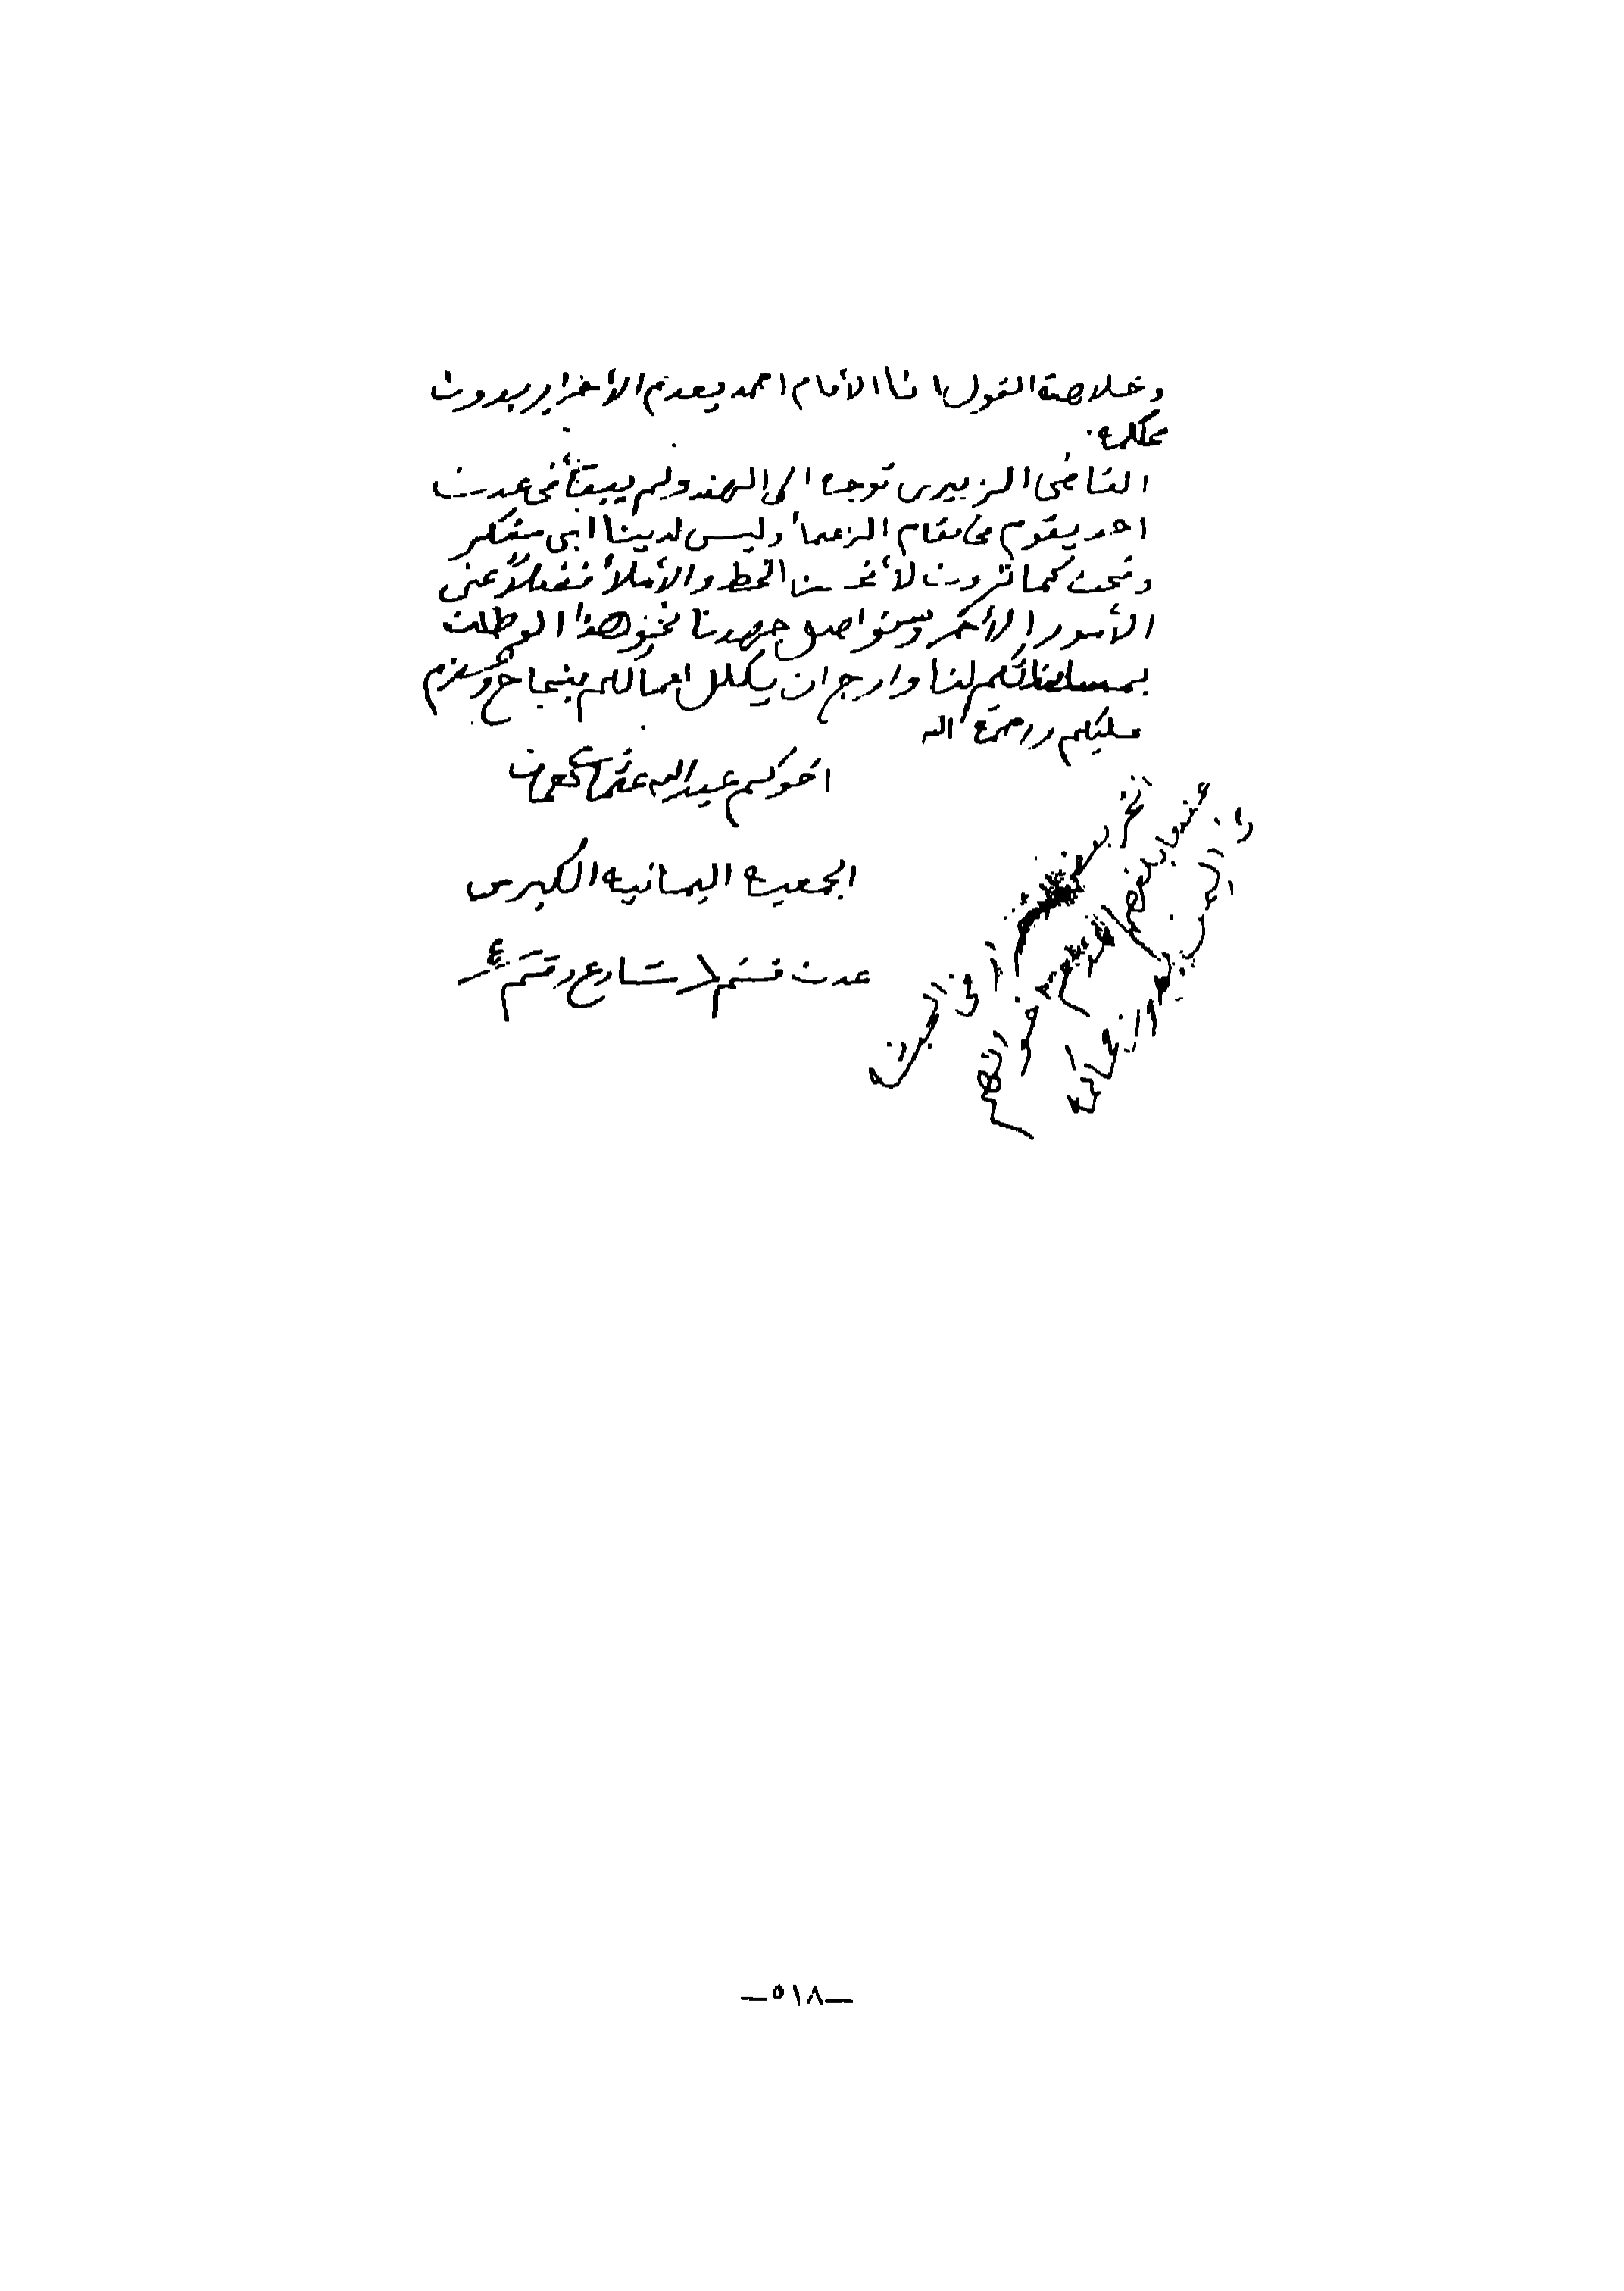 وخلاصة القول ان الأمام احمد يعدم الأحرار بدون
محاكمه.
القاضي الزبيري توجه الى الهند ولم يبقأ في عدن
احد يقوم في مقام الزعمأ وليس لدينا ابي مفكر
ونحن كما ترون لا نحسن الخط والأملأ فضلاً عن
الأمور الأخر وسنواصل جهدنا نحو هذا الوطن
بمساندتكم لنا وارجو ان يكلل اعمالكم بنجاح والسلام
عليكم ورحمة الله
اخوكم عبدالله عثمان
الجمعيه اليمانيه الكبرى
عدن قسم شارع رقم ٤
عندما بلغهم اخوانهم
في اليمن
—٥١٨—